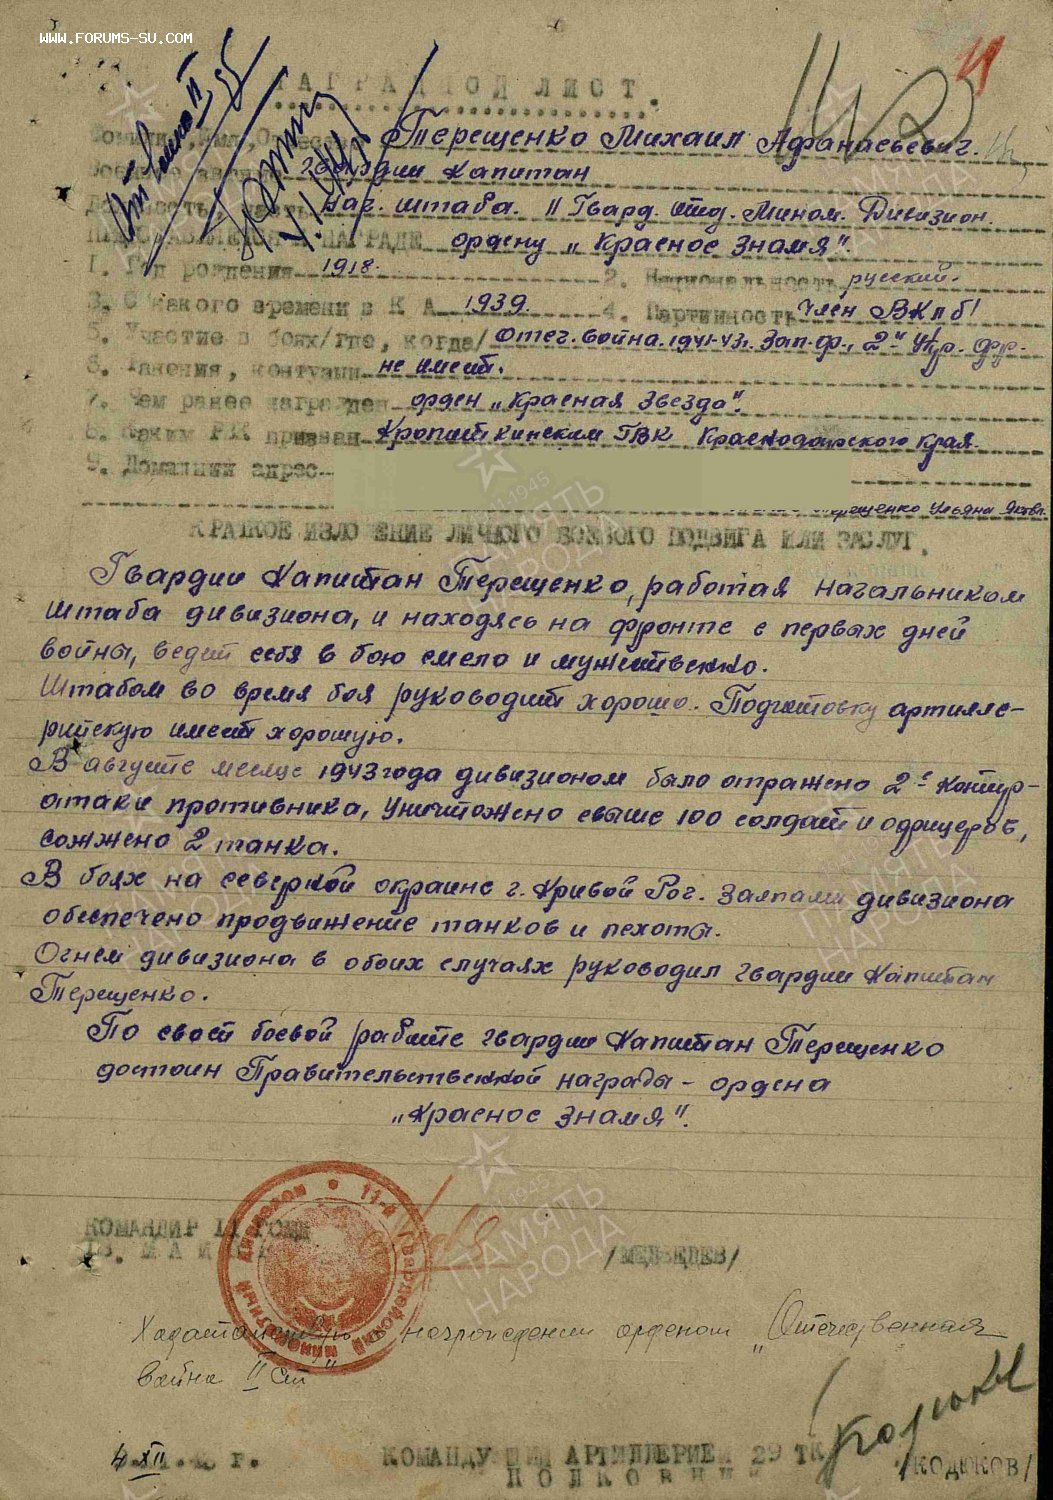 WWW.FORUMS-SU.COM
НАГРАДНОЙ ЛИСТ.
Фамилия, Имя, Отчество Терещенко Михаил Афанасьевич.
Военное звание гвардии капитан
Должность, часть Нач. штаба. 11 Гвард. отд. Мином. Дивизион.
ПРЕДСТАВЛЯЕТСЯ К НАГРАДЕ ордену „Красное Знамя".
1. Год рождения 1918. 2. Национальность русский.
3. С какого времени в К А 1939. 4. Партийность Член ВКПб
5. Участие в боях/где, когда/ Отеч. война. 1941-43г. Зап-ф., 2й Укр. Фр.
6. Ранения, контузии не имеет.
7. Чем ранее награжден орден „Красная Звезда".
8. Каким РВК призван Кропоткинским ГВК Краснодарского края.
9. Домашний адрес
Терещенко Ульяна
КРАТКОЕ ИЗЛОЖЕНИЕ ЛИЧНОГО БОЕВОГО ПОДВИГА ИЛИ ЗАСЛУГ.
Гвардии Капитан Терещенко, работая начальником
штаба дивизиона, и находясь на фронте с первых дней
войны, ведет себя в бою смело и мужественно.
Штабом во время боя руководит хорошо. Подготовку артилле-
рийскую имеет хорошую.
В августе месяце 1943 года дивизионом было отражено 2е контр-
атаки противника, уничтожено свыше 100 солдат и офицеров,
сожжено 2 танка.
В боях на северной окраине г. Кривой Рог. Залпами дивизиона
обеспечено продвижение танков и пехота.
Огнем дивизиона в обоих случаях руководил гвардии Капитан
Терещенко.
По своей боевой работе гвардии Капитан Терещенко
достоин Правительственной награды - ордена
„Красное Знамя".
КОМАНДИР 11 ГОМД
ГВ. МАЙОР /МЕДВЕДЕВ/
11-й Гвардейский Минометный Дивизион
Ходатайствую награждении орденом „Отечественная
война II ст"
4.XII. г.
КОМАНДУЮЩИЙ АРТИЛЛЕРИЕЙ 29 ТК
ПОЛКОВНИК /КОДЮКОВ/
1941-1945
ПАМЯТЬ
НАРОДА